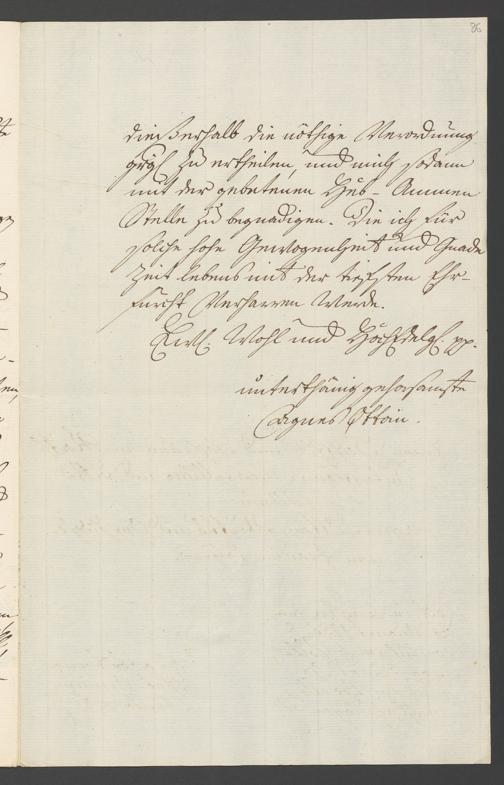 86
dießerhalb die nöthige Verordnung
zu ertheilen, und mich sodann
mit der gebetenen Heb-Ammen
Stelle zu begnadigen. Die ich für
solche hohe Gewogenheit und Gnade
Zeit lebens mit der tieffsten Ehr-
furcht Verharren Werde.
Ewl. Wohl und HochEdelg. pp.
unterthänig gehorsamste
Agnes Ottoin.